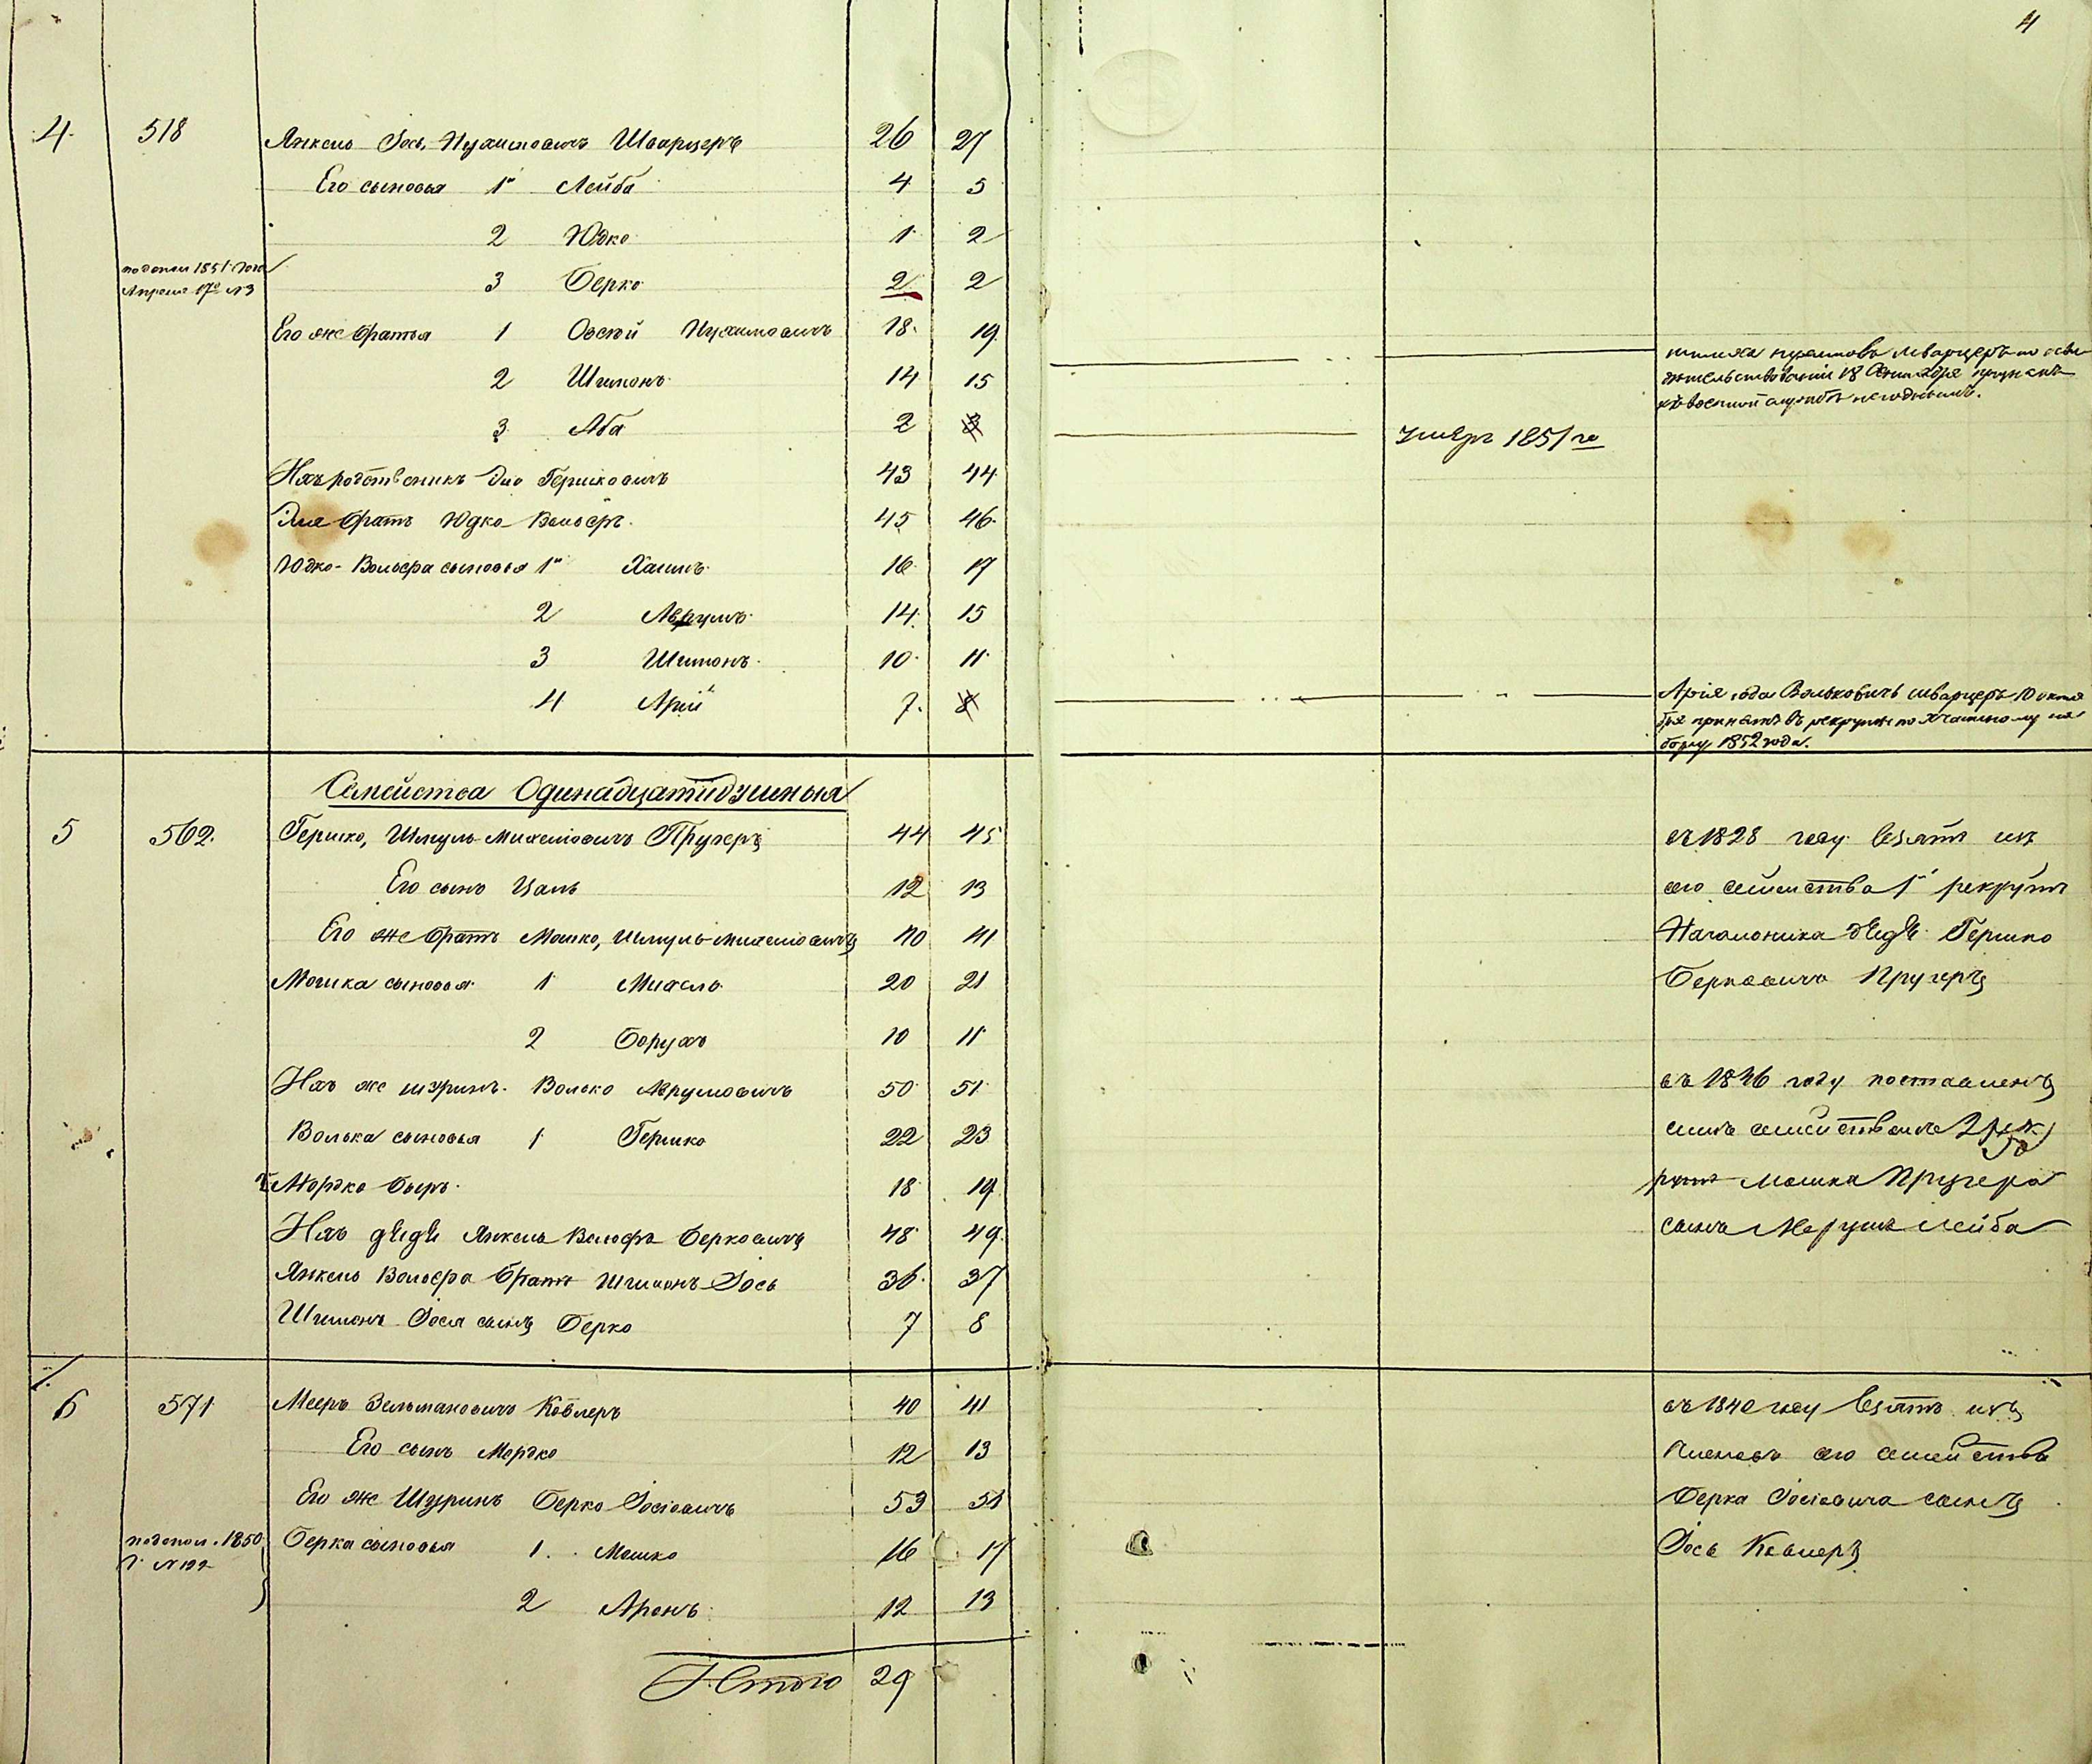 4
4. 518 Янкель Іось Нухимовичъ Шварцеръ 26 27
Его сыновья 1й Лейба 4 5
2 Юдко 1 2
по допол 1851 года Апреля 17го №3
3 Берко 2 2
Его же братья 1 Овсей Нухимовичъ 18. 19
2 Шимонъ 14 15
нухимовъ шварцеръ по осви
детельствованіи 18 признанъ
къ военной службѣ негоднымъ.
3 Аба 2 3 умеръ 1851го
Ихъ родственникъ Гершковичъ 43 44
братъ Юдко Вольфъ. 45 46.
Юдко-Вольфа сыновья 1й Хаимъ 16 17
2 Аврумъ 14. 15
3 Шимонъ 10 11
4 Арій 7. 8
Арія Вольковичъ шварцеръ 10 октя
бря принятъ въ рекруты по частному на
бору 1852 года.
Семейства Одинадцатидушныя
5 562. Гершко, Шмуль-Михелiовичъ Пругеръ 44 45 въ 1828 году взятъ изъ
Его сынъ Цаль 12 13 сего семейства 1й рекрутъ
Его же братъ Мошко, Шмуль-Михелiовичъ 40 41 дѣдѣ Гершко
Мошка сыновья 1 Михель 20 21 Берковичъ Пругеръ
2 Борухъ 10 11
Ихъ же шуринъ Волько Аврумовичъ 50 51 въ 1846 году поставленъ
Волька сыновья 1 Гершко 22 23 симъ семействомъ 2 рек
2 Мордко Беръ 18 19 рутъ Мошка Пругера
Ихъ дѣдѣ Янкель Вольфъ Берковичъ 48 49 сынъ Лейба
Янкель Вольфа братъ Шимонъ-Іось 36. 37
Шимонъ Іося сынъ Берко 7 8
6 571 Мееръ Зельмановичъ Ковлеръ 40 41 въ 1840 году взятъ изъ
Его сынъ Мордко 12 13 членовъ сего семейства
Его же Шуринъ Берко Іосіовичъ 53 54 Берка Іосіовича сынъ
по допол. 1850 г. № 192
Берка сыновья 1. Мошко 16 17 Іось Ковлеръ
2 Аронъ 12 13
Итого 29